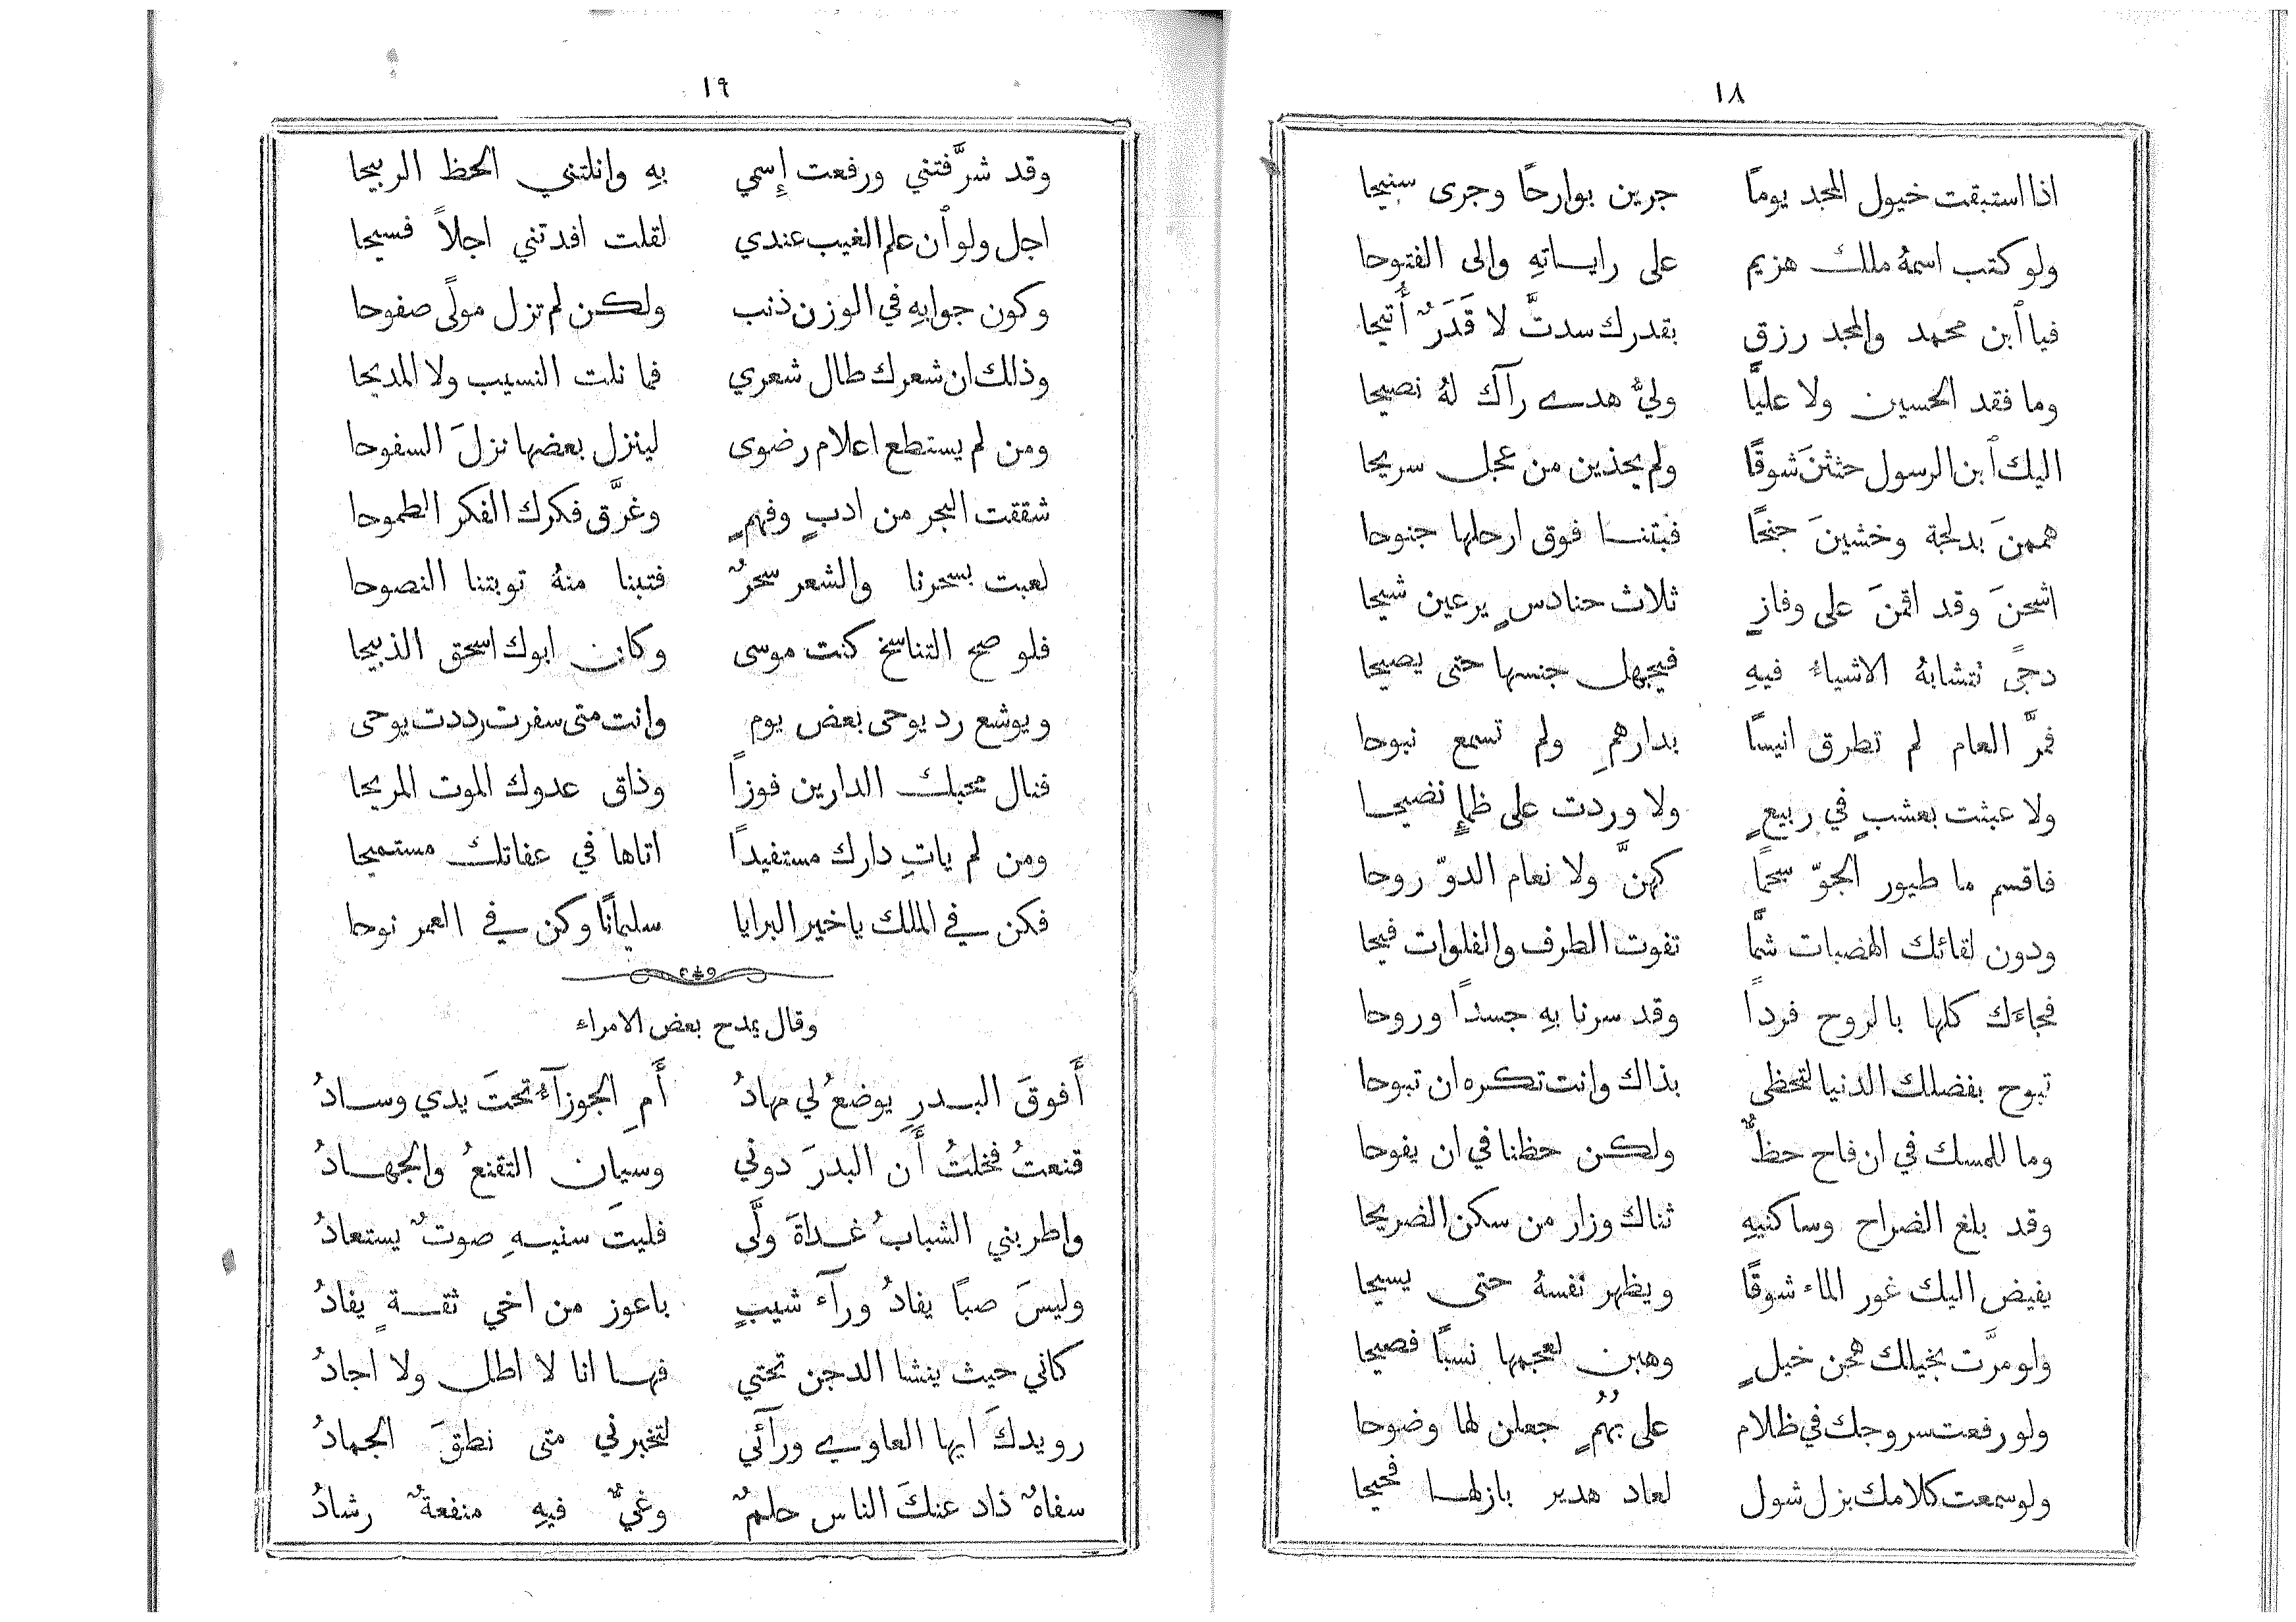 ١٨
اذا استبقت خيول المجد يومًا جرين بوارحًا وجرى سنيحا
ولو كتب اسمهُ ملك هزيم على راياتهِ والى الفتوحا
فيا ٱبن محمد والمجد رزق بقدرك سدتَّ لا قَدَرٌ أُتيحا
وما فقد الحسين ولا عليًّا وليُّ هدى رآك لهُ نصيحا
اليك ٱبن الرسول حثثنَ شوقًا ولم يحذين من عجل سريحا
هممنَ بدلجة وخشينَ جنحًا فبتنا فوق ارحلها جنوحا
اشحنَ وقد اقمنَ على وفازٍ ثلاث حنادسٍ يرعين شيحا
دجًى تتشابهُ الاشياءُ فيهِ فيجهل جنسها حتى يصيحا
فمرَّ العام لم تطرق انيسًا بدارهمِ ولم تسمع نبوحا
ولا عبثت بعشبٍ في ربيعٍ ولا وردت على ظمإٍ نضيحا
فاقسم ما طيور الجوّ سحمًا كهنَّ ولا نعام الدوّ روحا
ودون لقائك الهضبات شمًّا تفوت الطرف والفلوات فيحا
فجاءَك كلها بالروح فردًا وقد سرنا بهِ جسدًا وروحا
تبوح بفضلك الدنيا لتحظى بذاك وانت تكره ان تبوحا
وما للمسك في ان فاح حظٌّ ولكن حظنا في ان يفوحا
وقد بلغ الضراح وساكنيهِ ثناك وزار من سكن الضريحا
يفيض اليك غور الماء شوقًا ويظهر نفسهُ حتى يسيحا
ولو مرَّت بخيلك هجن خيلٍ وهبن لعجمها نسبًا فصيحا
ولو رفعت سروجك في ظلام على بُهُمٍ جعلن لها وضوحا
ولو سمعت كلامك بزل شول لعاد هدير بازلها فحيحا
١٩
وقد شرَّفتني ورفعت إسمي بهِ وانلتني الحظ الربيحا
اجل ولو ٱن علم الغيب عندي لقلت افدتني اجلاً فسيحا
وكون جوابهِ في الوزن ذنب ولكن لم تزل مولًى صفوحا
وذلك ان شعرك طال شعري فما نلت النسيب ولا المديحا
ومن لم يستطع اعلام رضوى لينزل بعضها نزلَ السفوحا
شققت البحر من ادبٍ وفهمٍ وغرَّق فكرك الفكر الطموحا
لعبت بسحرنا والشعر سحرٌ فتبنا منهُ توبتنا النصوحا
فلو صح التناسخ كنت موسى وكان ابوك اسحق الذبيحا
ويوشع رد يوحى بعض يوم وانت متى سفرت رددت يوحى
فنال محبك الدارين فوزًا وذاق عدوك الموت المريحا
ومن لم ياتِ دارك مستفيدًا اتاها في عفاتك مستميحا
فكن في الملك يا خير البرايا سليمانًا وكن في العمر نوحا
وقال يمدح بعض الامراء
أَفوقَ البدرِ يوضعُ لي مهادُ أَمِ الجوزآءُ تحتَ يدي وسادُ
قنعتُ فخلتُ أَن البدرَ دوني وسيانِ التقنعُ والجهادُ
واطربني الشبابُ غداةَ ولَّى فليتَ سنيهِ صوتٌ يستعادُ
وليسَ صبًا يفادُ ورآءَ شيبٍ باعوز من اخي ثقةٍ يفادُ
كاني حيث ينشا الدجن تحتي فها انا لا اطل ولا اجادُ
رويدكَ ايها العاوي ورآئي لتخبرني متى نطقَ الجمادُ
سفاهٌ ذاد عنكَ الناس حلمٌ وغيٌّ فيهِ منفعةٌ رشادُ